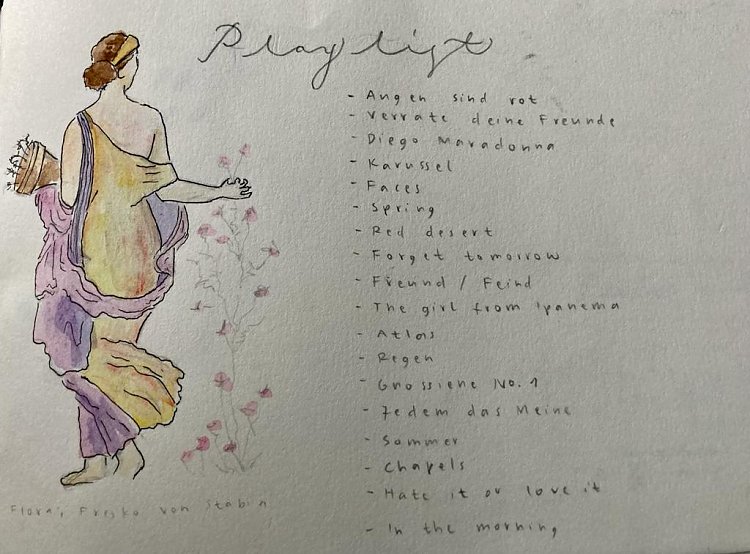 Playlist
- Augen sind rot
- Verrate deine Freunde
- Diego Maradonna
- Karussel
- Faces
- Spring
- Red desert
- Forget tomorrow
- Freund / Feind
- The girl from Ipanema
- Atlas
- Regen
- Gnossiene No. 1
- Jedem das Meine
- Sommer
- Chapels
- Hate it or love it
- In the morning
Flora, Fresko von Stabin